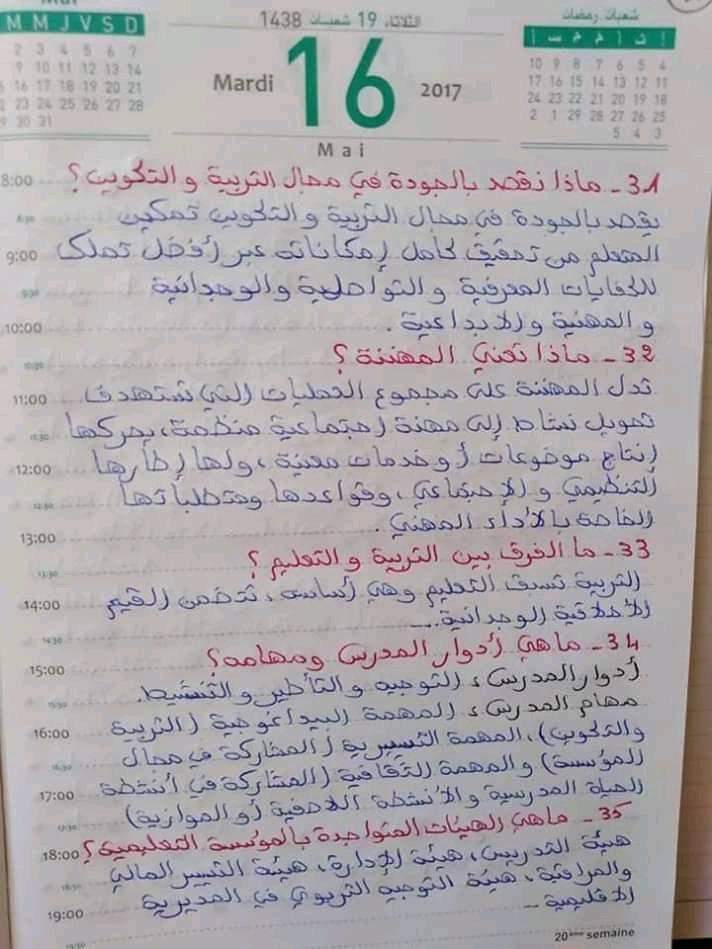 Mai
M M J V S D
2 3 4 5 6 7
9 10 11 12 13 14
16 17 18 19 20 21
23 24 25 26 27 28
30 31
الثلاثاء 19 شعبان 1438
Mardi 16 2017
Mai
شعبان - رمضان
إ ث أ خ ج س أ
10 9 8 7 6 5 4
17 16 15 14 13 12 11
24 23 22 21 20 19 18
2 1 29 28 27 26 25
5 4 3
8:00 31- ماذا نقصد بالجودة في مجال التربية والتكوين؟
8:30 يقصد بالجودة في مجال التربية والتكوين تمكين
9:00 المتعلم من تحقيق كامل إمكاناته عبر أفضل تملك
9:30 للكفايات المعرفية والتواصلية والوجدانية
10:00 والمهنية والإبداعية.
10:30 32- ماذا تعني المهننة؟
11:00 تدل المهننة على مجموع العمليات التي تستهدف
11:30 تحويل نشاط إلى مهنة اجتماعية منظمة، يحركها
12:00 إنتاج موضوعات أو خدمات معينة، ولها إطارها
12:30 التنظيمي والاجتماعي، وقواعدها ومتطلباتها
13:00 الخاصة بالأداء المهني.
13:30 33- ما الفرق بين التربية والتعليم؟
14:00 التربية تسبق التعليم وهي أساسه، تتضمن القيم
14:30 الأخلاقية الوجدانية...
34- ما هي أدوار المدرس ومهامه؟
15:00 أدوار المدرس: التوجيه والتأطير والتنشيط.
15:30 مهام المدرس: المهمة البيداغوجية (التربية
16:00 والتكوين)، المهمة التسييرية (المشاركة في مجال
16:30 المؤسسة) والمهمة الثقافية (المشاركة في أنشطة
17:00 الحياة المدرسية والأنشطة اللاصفية أو الموازية)
17:30 35- ما هي الهيئات المتواجدة بالمؤسسة التعليمية؟
18:00 هيئة التدريس، هيئة الإدارة، هيئة التسيير المالي
18:30 والمراقبة، هيئة التوجيه التربوي في المديرية
19:00 الإقليمية...
19:30
20ème semaine